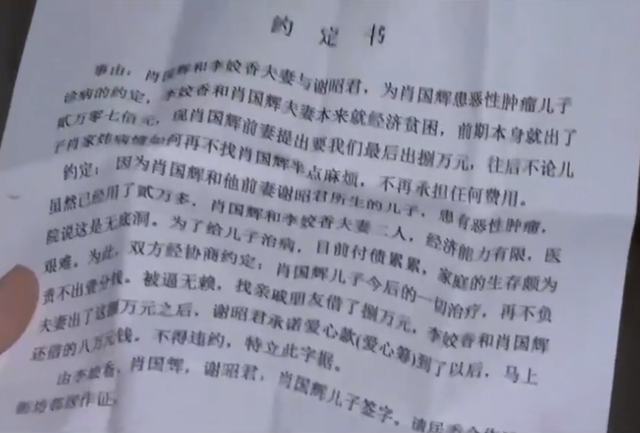 约定书
事由：肖国辉和李姣香夫妻与谢昭君，为肖国辉患恶性肿瘤儿子
诊病的约定，李姣香和肖国辉夫妻本来就经济贫困，前期本身就出了
贰万零七佰元，现肖国辉前妻提出要我们最后出捌万元，往后不论儿
子肖家炜病情如何再不找肖国辉半点麻烦，不再承担任何费用。
约定：因为肖国辉和他前妻谢昭君所生的儿子，患有恶性肿瘤，
虽然已经用了贰万多，肖国辉和李姣香夫妻二人，经济能力有限，医
院说这是无底洞。为了给儿子治病，目前付债累累，家庭的生存颇为
艰难。为此，双方经协商约定：肖国辉儿子今后的一切治疗，再不负
责不出壹分钱。被逼无赖，找亲戚朋友借了捌万元，李姣香和肖国辉
夫妻出了这捌万元之后，谢昭君承诺爱心款(爱心筹)到了以后，马上
还借的八万元钱。不得违约，特立此字据。
由李姣香，肖国辉，谢昭君，肖国辉儿子签字。请居委会
街坊都居作证。